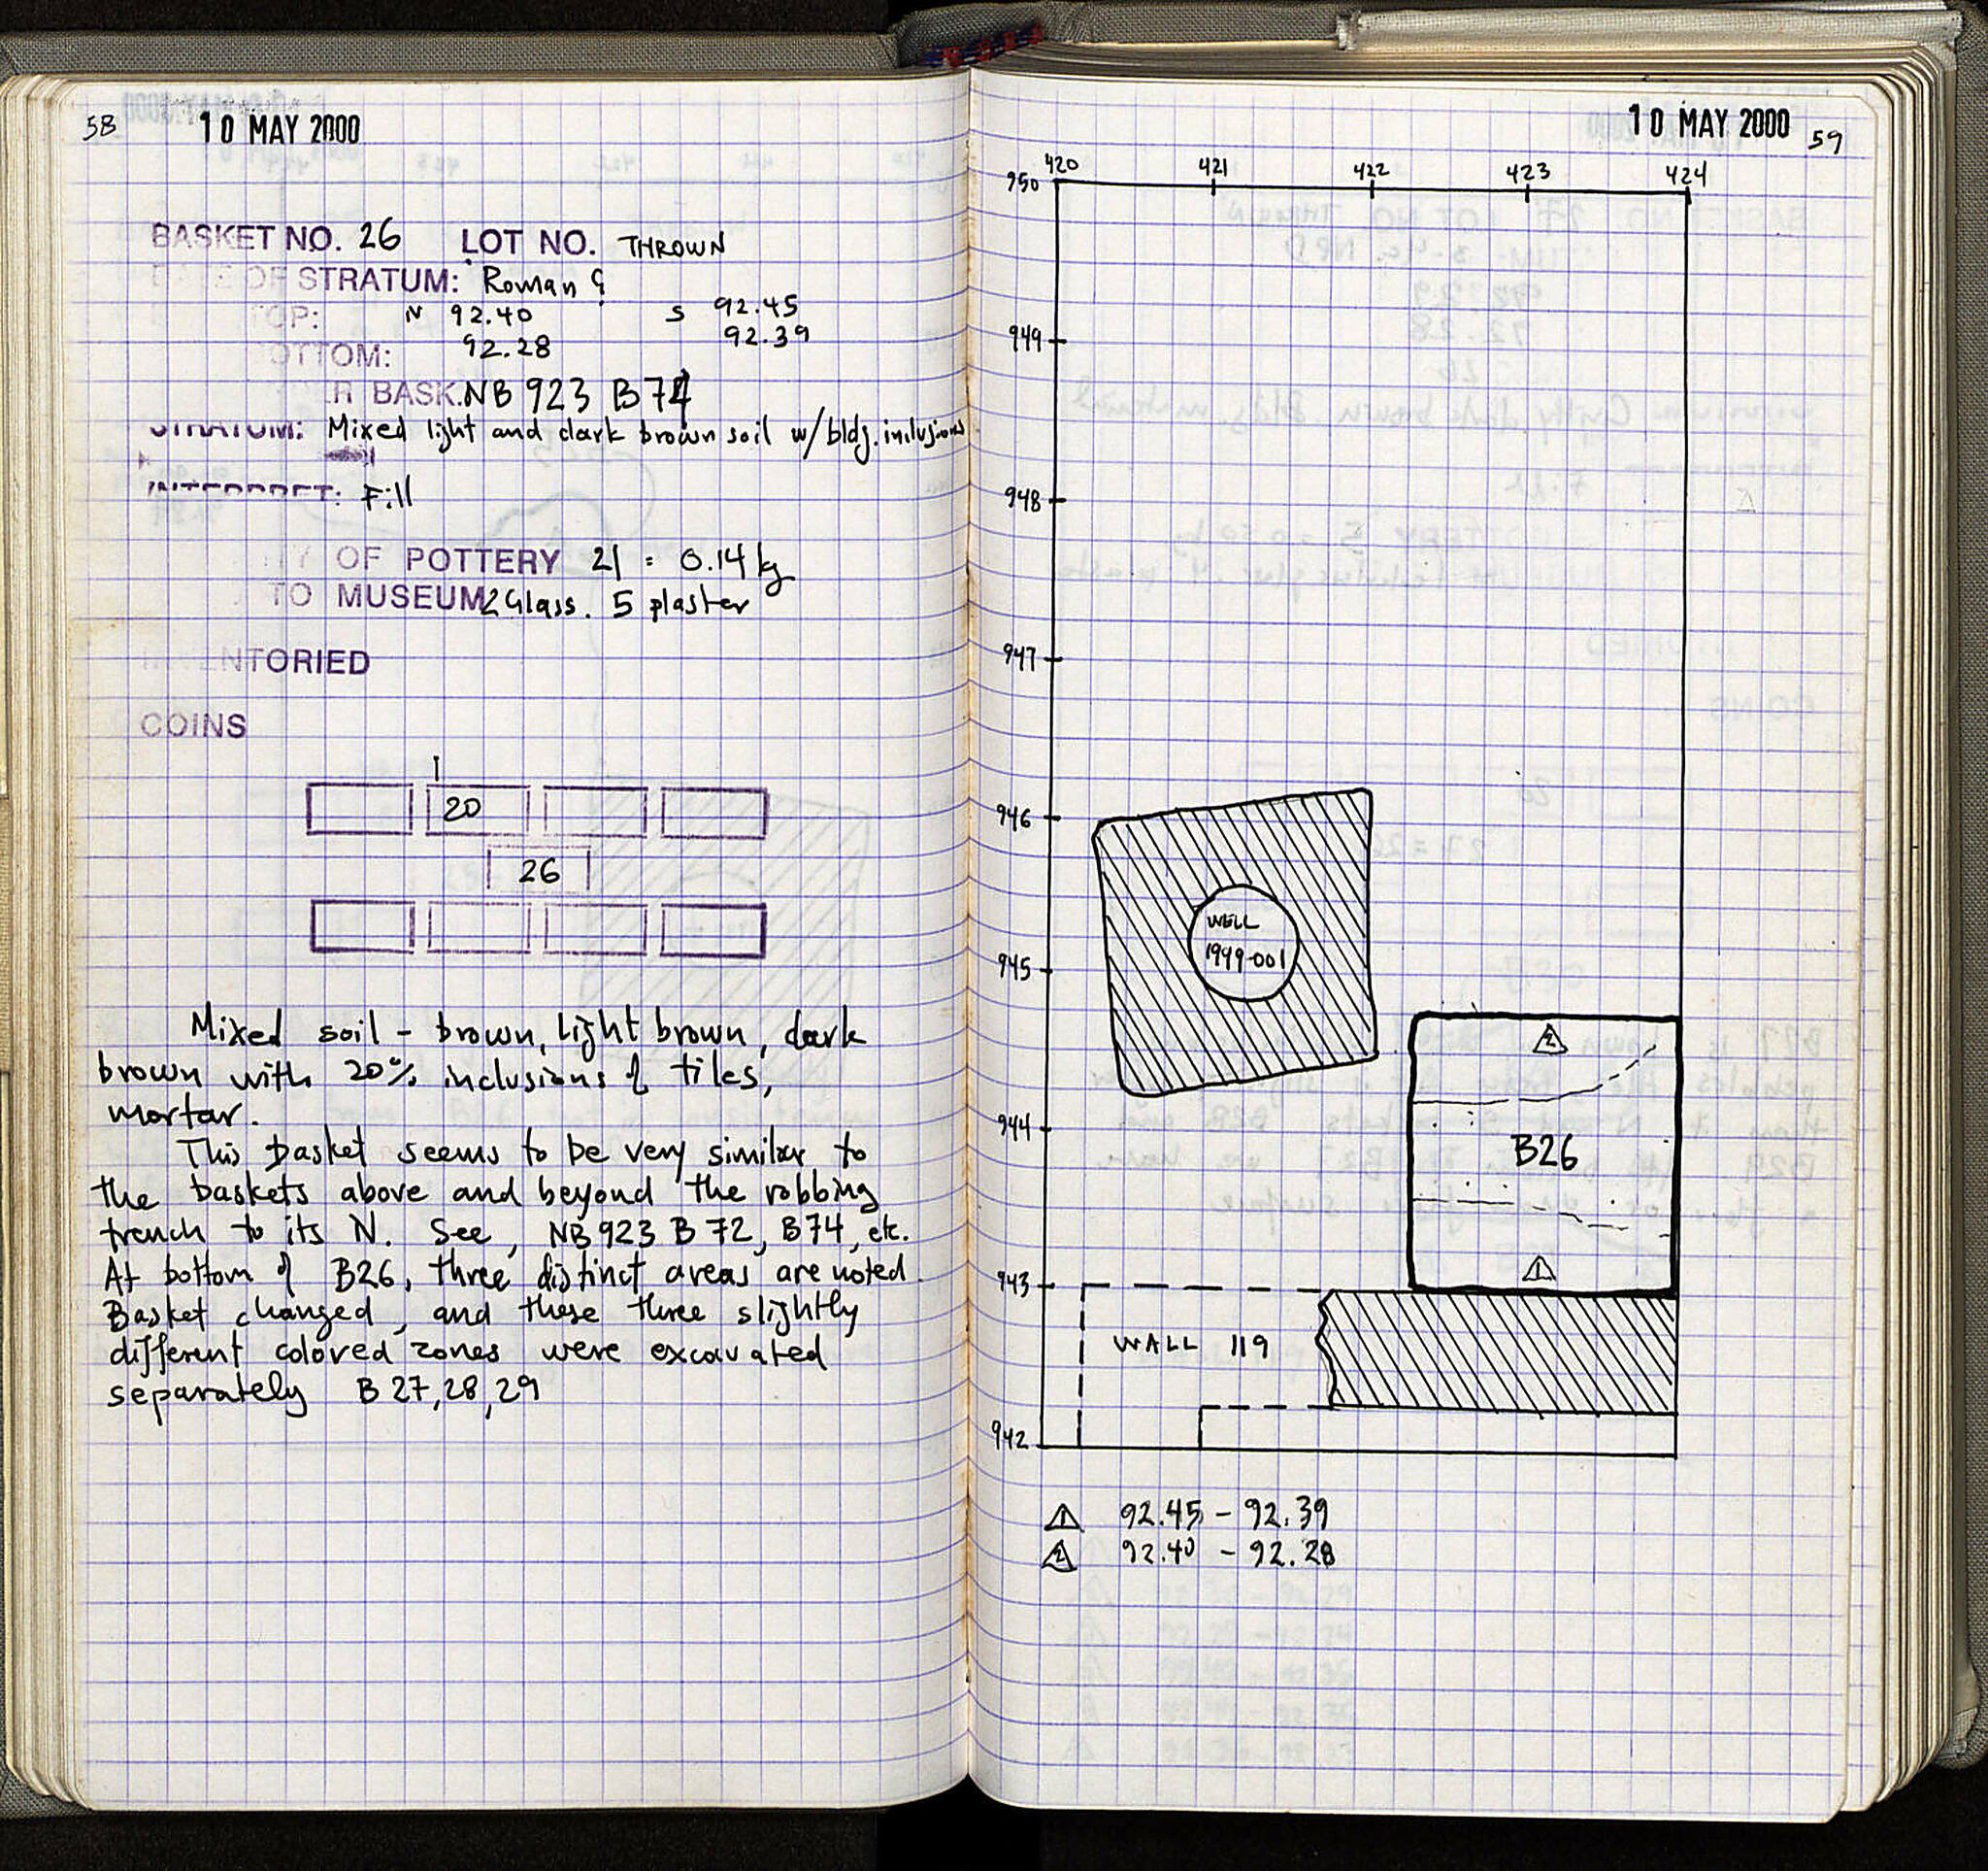 58
10 MAY 2000
BASKET NO. 26 LOT NO. THROWN
DATE OF STRATUM: Roman ?
TOP: N 92.40 S 92.45
BOTTOM: 92.28 92.39
BASK. NB 923 B74
STRATUM: Mixed light and dark brown soil w/ bldg. inclusions
INTERPRET: Fill
OF POTTERY 21 = 0.14 kg
TO MUSEUM 2 Glass. 5 plaster
INVENTORIED
COINS
1
20
26
Mixed soil - brown, light brown, dark
brown with 20% inclusions of tiles,
mortar.
This basket seems to be very similar to
the baskets above and beyond the robbing
trench to its N. See, NB 923 B 72, B74, etc.
At bottom of B26, three distinct areas are noted.
Basket changed, and these three slightly
different colored zones were excavated
separately B 27, 28, 29
10 MAY 2000
59
420 421 422 423 424
950
949
948
947
946
WELL
1999-001
945
2
944
B26
1
943
WALL 119
942
1 92.45 - 92.39
2 92.40 - 92.28